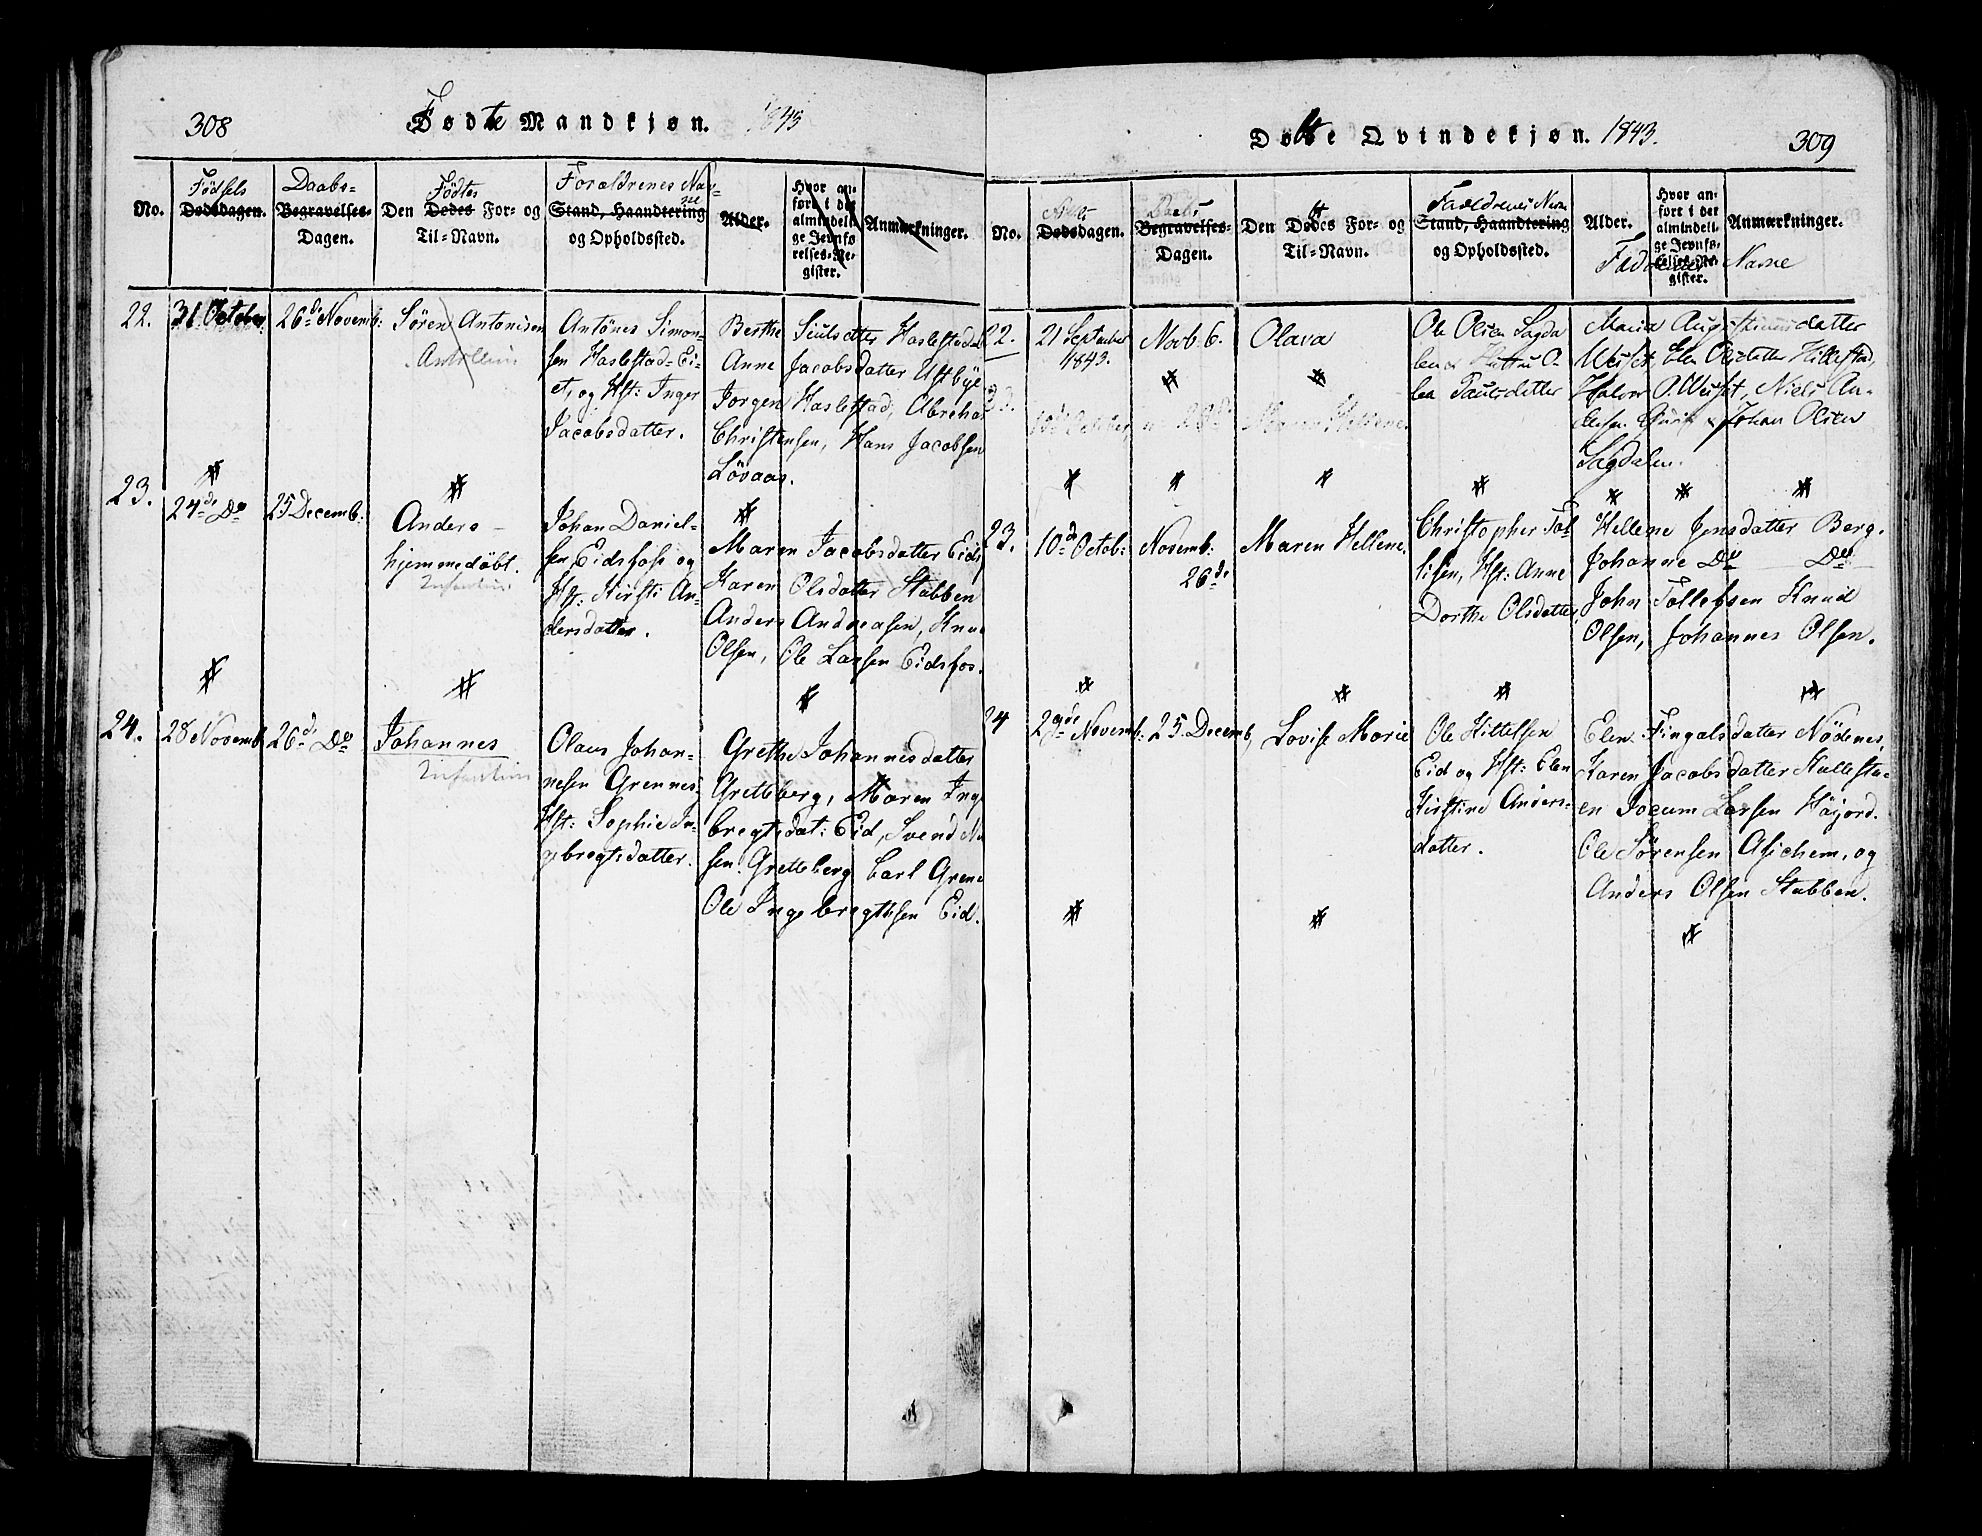 308
Fødte Mandkjøn. 1843
No.
Fødsels
Dødsdagen.
Daabs-
Begravelses-
Dagen.
Fødtes
Den Dødes For- og
Til-Navn.
Forældrenes Nav-
ne
Stand, Haandtering
og Opholdssted.
Alder.
Hvor an-
ført i det
almindeli-
ge Jevnfø-
relses-Re-
gister.
Anmærkninger.
22.
31 October
26de Novemb:
Søren Antonisen
Antønes Simon-
sen Haslestad-Ei-
et, og Hst: Inger
Jacobsdatter.
Berthe Siulsatter Haslestad
Anne Jacobsdatter Ustbye
Jørgen Haslestad, Abraha
Christensen, Hans Jacobsen
Løvaas.
23.
24de Do
25 Decemb:
Anders -
hjemmedøbt.
Johan Daniel-
sen Eidsfoss og
Hst: Kirsti An-
dersdatter.
Maren Jacobsdatter Eids
Karen Olsdatter Stabben
Anders Andreasen, Knu
Olsen, Ole Larsen Eidsfos.
24.
28 Novemb
26de Do
Johannes
Olaus Johan-
nesen Grennes,
Hst: Sophie In-
gebregtsdatter.
Grethe Johannesdatter
Gretteberg, Maren Inge
bregtsdat: Eid, Svend
sen Gretteberg Carl Grene
Ole Ingebregthsen Eid.
Døbte Qvindekjøn. 1843.
309
No.
Dødsdagen.
Daabs
Begravelses-
Dagen.
Den Dødes For- og
Til-Navn.
Forældrenes Navn
Stand, Haandtering
og Opholdssted.
Alder.
Hvor an-
ført i det
almindeli-
ge Jevnfø-
relses-Re-
gister.
Anmærkninger.
Faddernes Navne
22.
21 September
1843.
Novb. 6.
Olava
Ole Olsen Sagda
len og Hustru O-
lea Paulsdatter
Maria Augustinusdatter
Elen Olsdatter Hillestad,
Halvor O. Niels An-
Johan Olsen
Sagdalen.
23.
10de October
26de
Maren Hellene.
23.
10de Octob:
Novemb:
26de
Maren Hellene.
Christopher Tol-
lefsen, Hst: Anne
Dorthe Olsdatter
Hellene Jensdatter Berg.
Johanne Do Do
John Tollefsen Knud
Olsen, Johannes Olsen.
24
29de Novemb:
25. Decemb,
Lovise Marie
Ole Kittelsen
Eid og Hst: Elen
Kirstine Anders-
datter.
Elen Fingalsdatter Nødenes,
Karen Jacobsdatter Hallesta-
en Jocum Larsen Høijord.
Ole Sørensen Asichem, og
Anders Olsen Stabben.